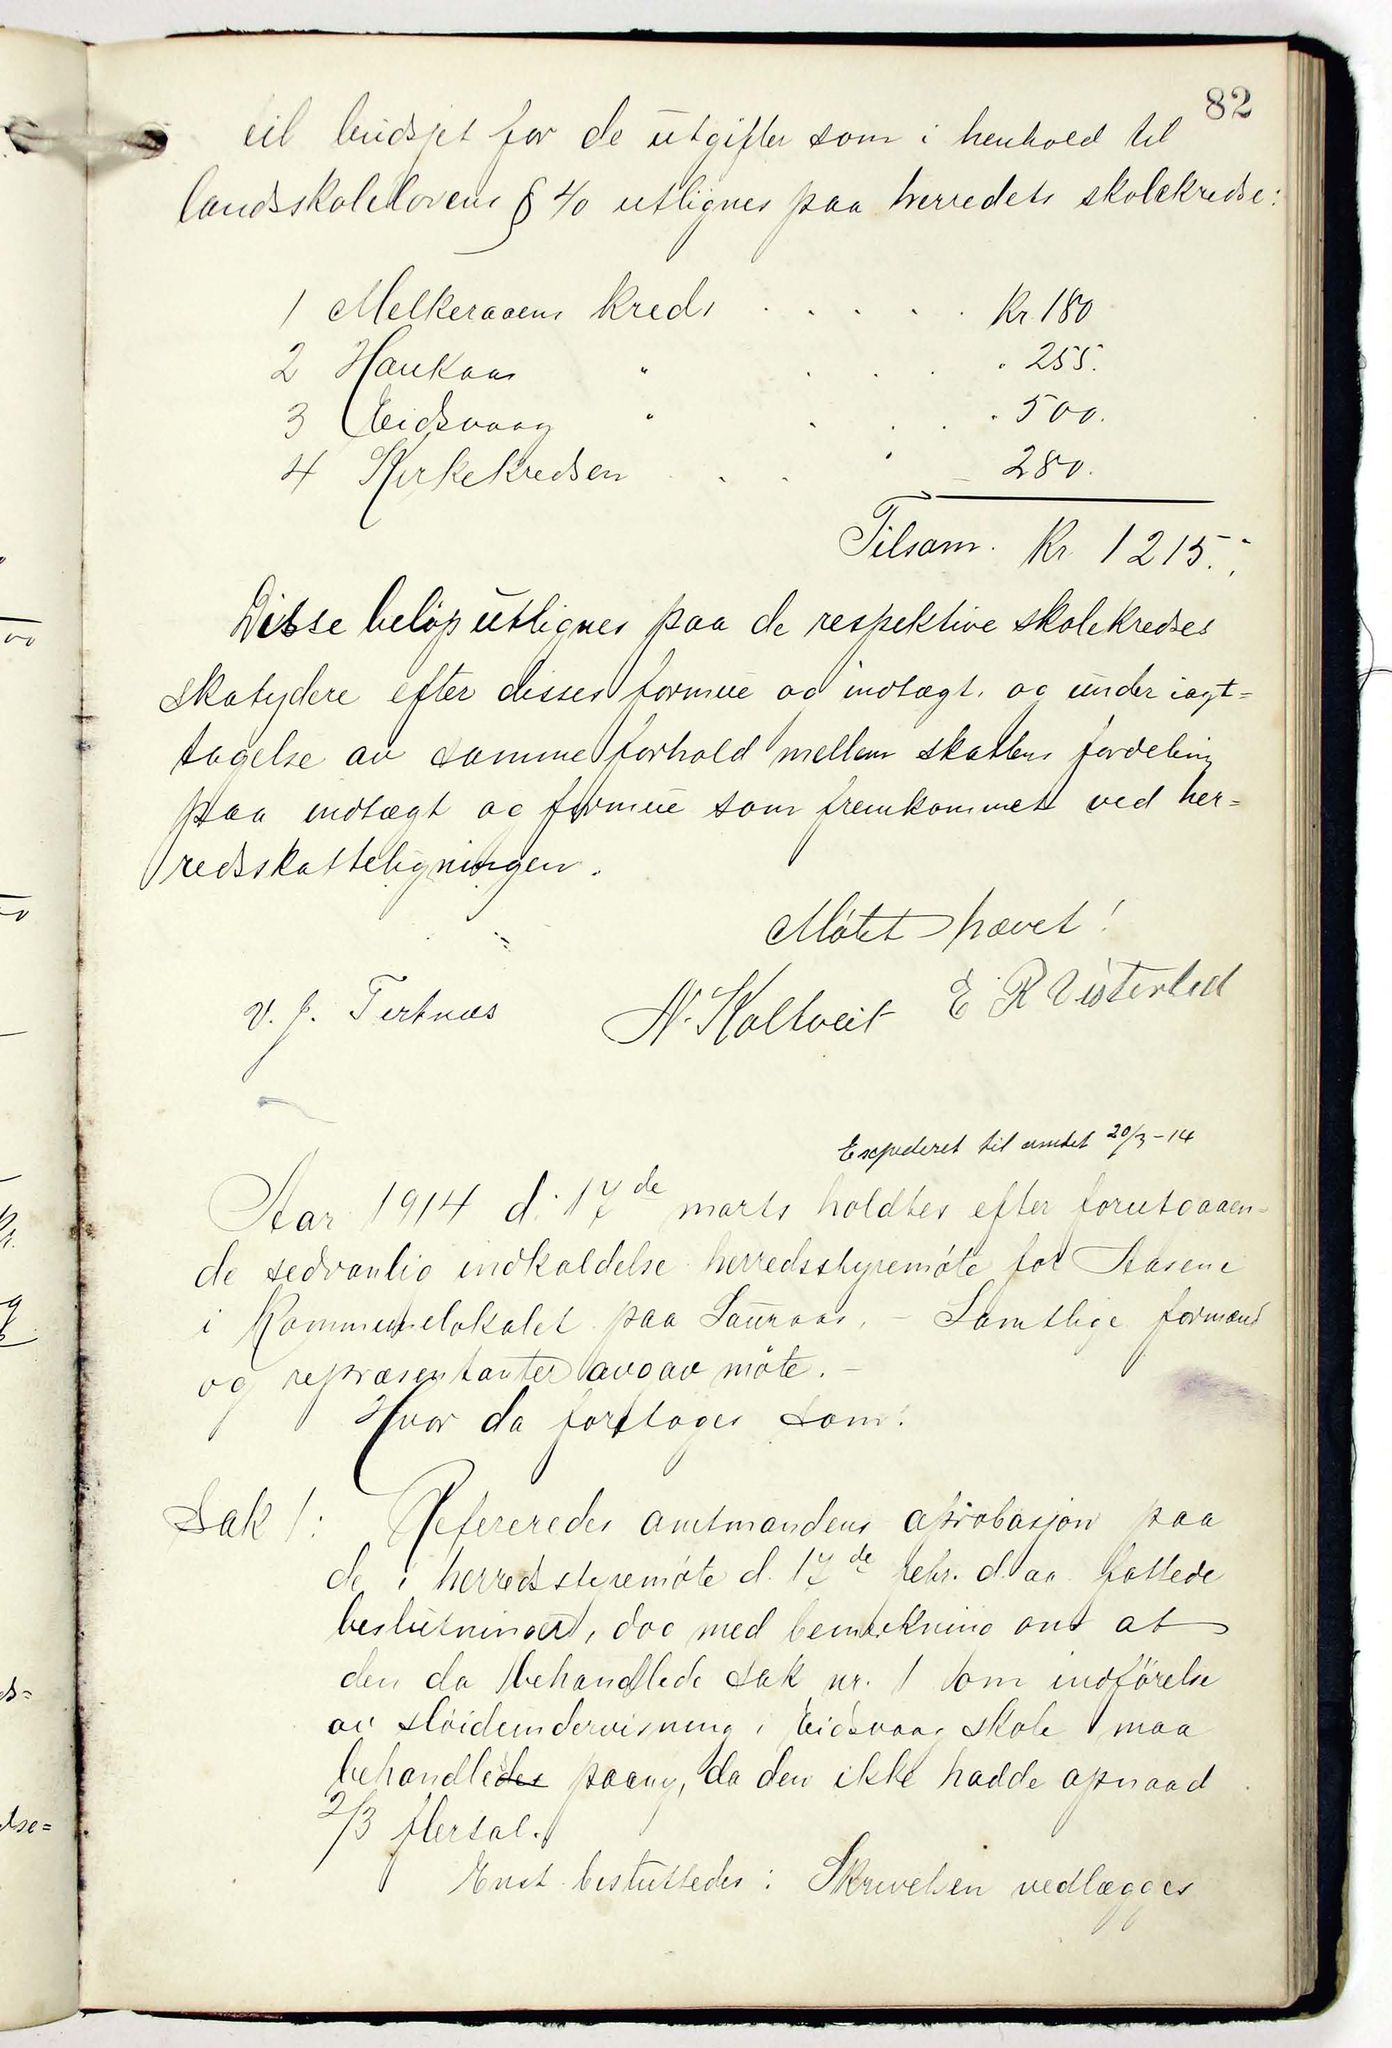 82
til budsjet for de utgifter som i henhold til
landsskolelovens § 40 utlignes paa herredets skolekredse:
1 Melkeraaens kreds . . . . . Kr. 180
2 Haukaas " . . . " 255.
3 Eidsvaag " . . . " 500.
4 Kirkekredsen . . . " 280.
Tilsam. Kr. 1215.
Disse beløp utlignes paa de respektive skolekredses
skatydere efter disses formue og indtægt, og under iagt-
tagelse av samme forhold mellem skattens fordeling
paa indtægt og formue som fremkommet ved her-
redsskatteligningen.
Møtet hævet!
V. J. Tertnæs N. Kaltveit E R
Expederet til amtet 20/3-14
Aar 1914 d. 17de marts holdtes efter forutgaaen-
de sedvanlig indkaldelse herredsstyremøte for Aasene
i Kommunelokalet paa Sauraas. – Samtlige formænd
og repræsentanter avgav møte. –
Hvor da foretoges som:
Sak 1: Refereredes amtmandens aprobasjon paa
de i herredsstyremøte d. 17de febr. d. aa. fattede
beslutninger, dog med bemerkning om at
den da behandlede sak nr. 1 om indførelse
av sløidundervisning i Eidsvaag skole maa
behandles paany, da den ikke hadde opnaad
2/3 flertal.
Enst. besluttedes: Skrivelsen vedlægges